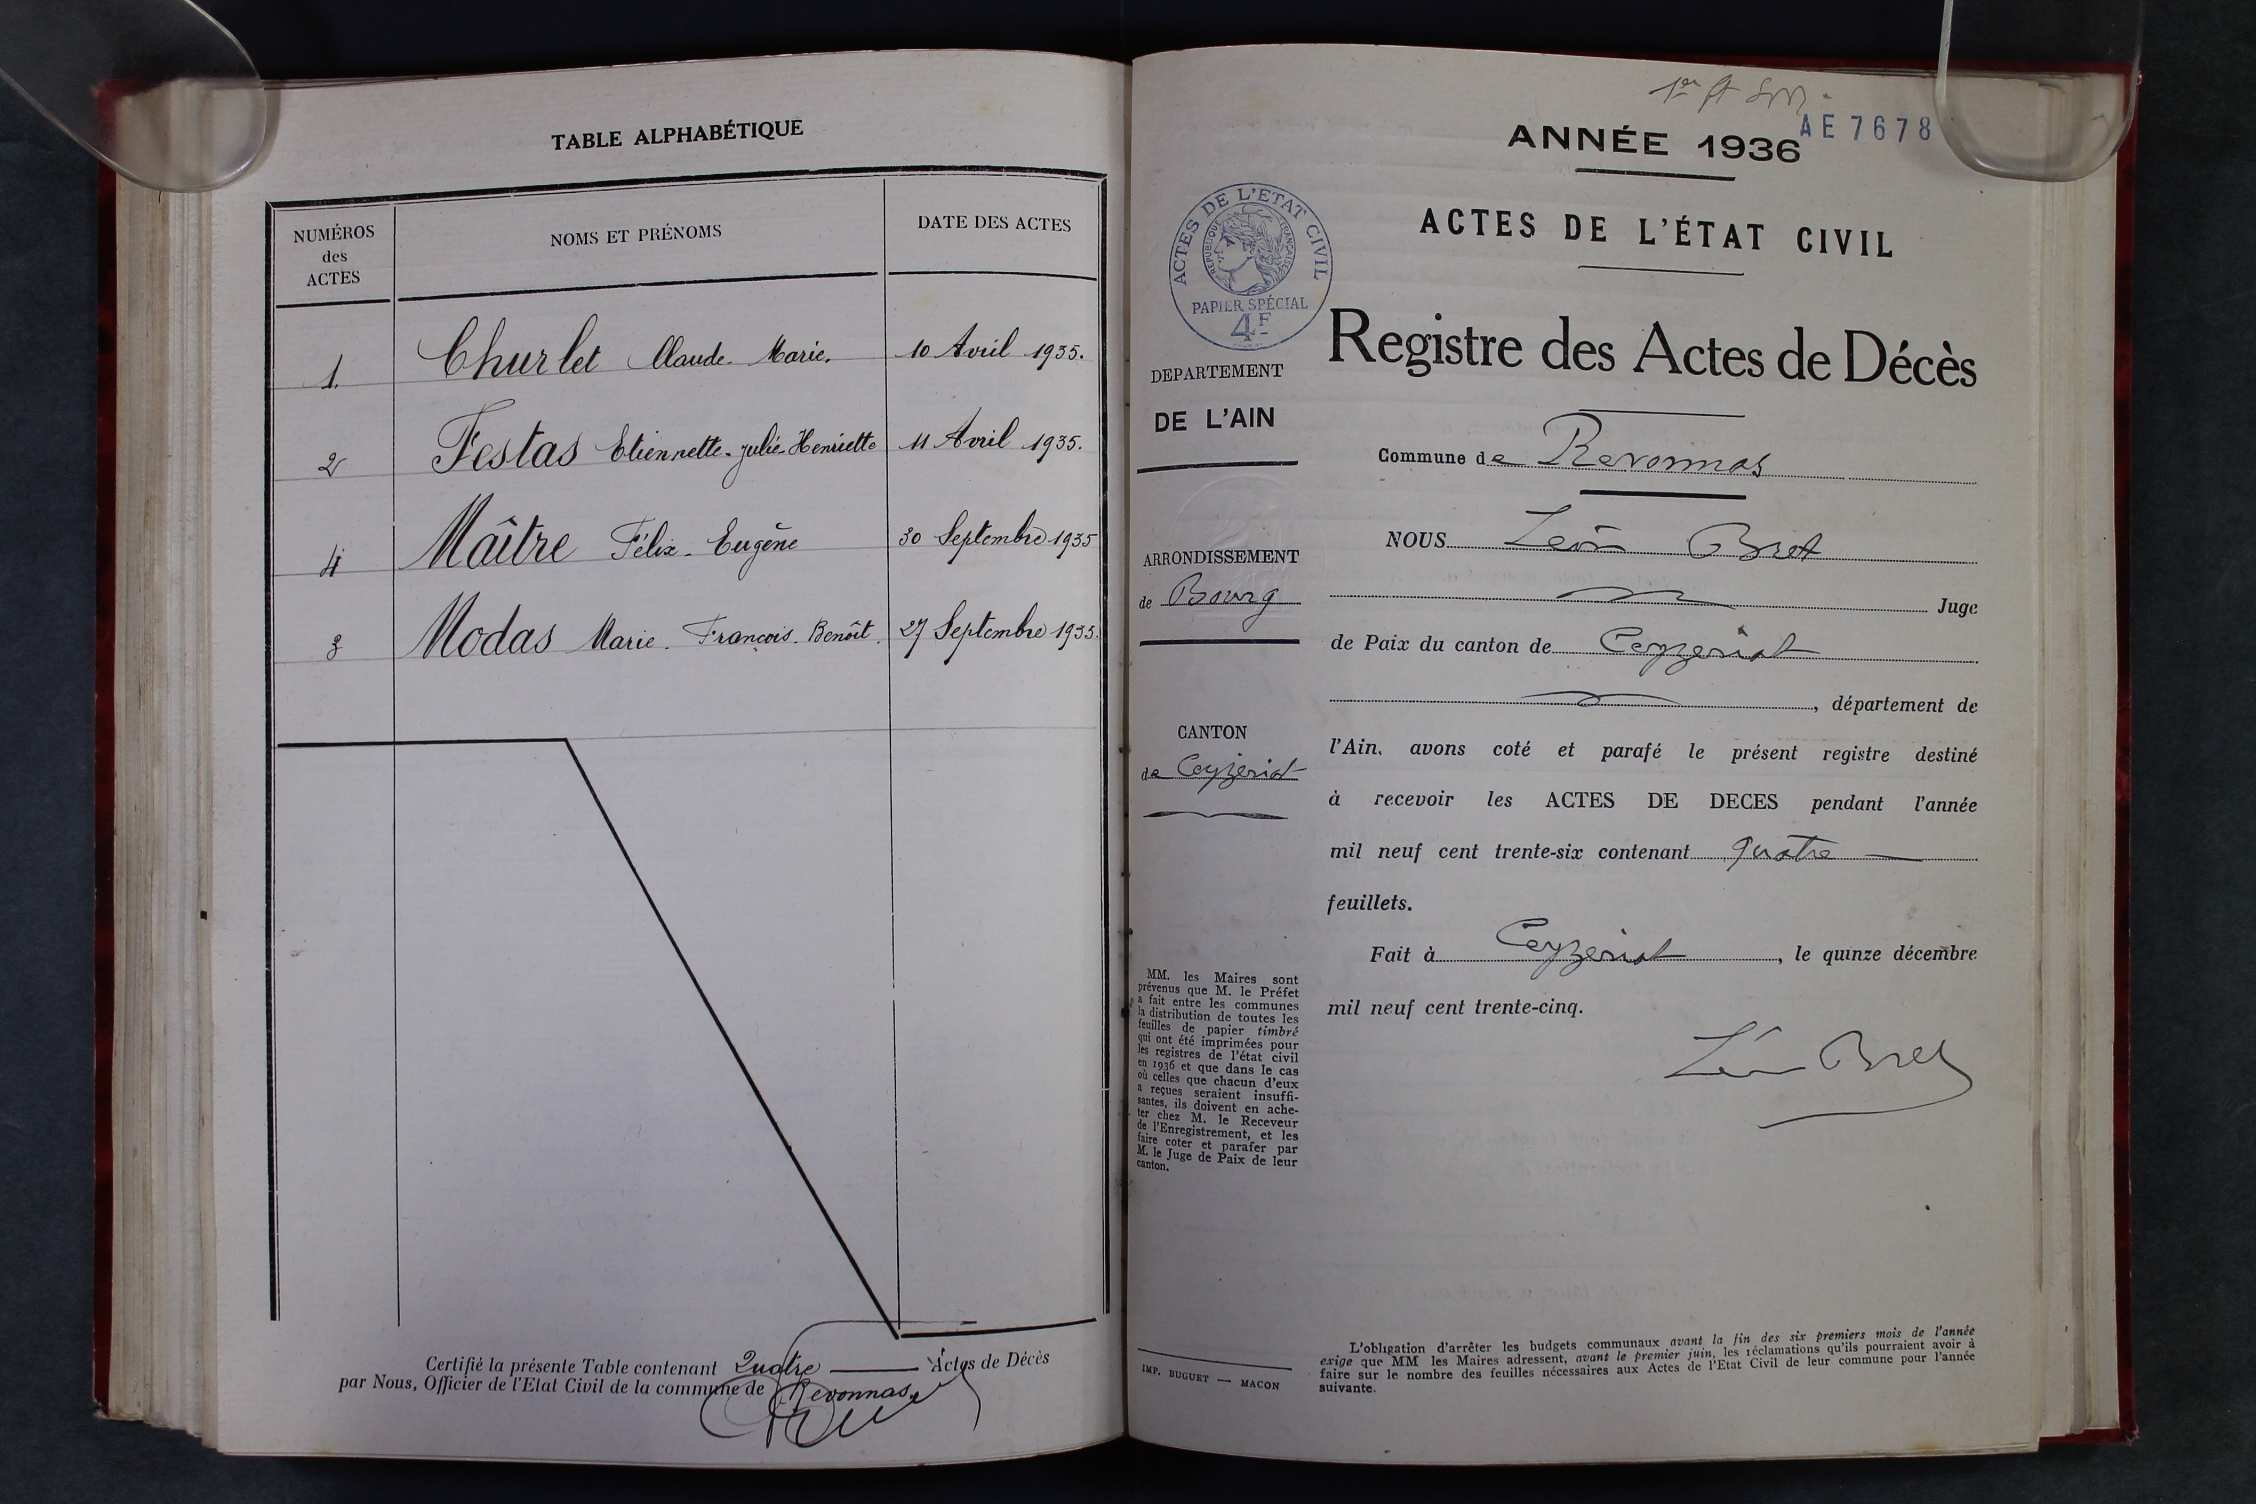 TABLE ALPHABÉTIQUE
NUMÉROS
des
ACTES
NOMS ET PRÉNOMS
DATE DES ACTES
1. Churlet Claude-Marie. 10 Avril 1935.
2 Festas Etiennette-Julie-Henriette 11 Avril 1935.
4 Maître Félix-Eugène 30 Septembre 1935
3 Modas Marie-François-Benôit. 27 Septembre 1935.
Certifié la présente Table contenant Quatre Actes de Décès
par Nous, Officier de l'Etat Civil de la commune de Revonnas.
AE 7678
ANNÉE 1936
ACTES DE L'ÉTAT CIVIL
Registre des Actes de Décès
ACTES DE L'ETAT CIVIL
REPUBLIQUE FRANÇAISE
PAPIER SPÉCIAL
4F
DEPARTEMENT
DE L'AIN
ARRONDISSEMENT
de Bourg
CANTON
de Ceyzeriat
MM. les Maires sont
prévenus que M. le Préfet
a fait entre les communes
la distribution de toutes les
feuilles de papier timbré
qui ont été imprimées pour
les registres de l'état civil
en 1936 et que dans le cas
où celles que chacun d'eux
a reçues seraient insuffi-
santes, ils doivent en ache-
ter chez M. le Receveur
de l'Enregistrement, et les
faire coter et parafer par
M. le Juge de Paix de leur
canton.
IMP. BUGUET — MACON
Commune de Revonnas
NOUS Léon Bret
Juge
de Paix du canton de Ceyzeriat
, département de
l'Ain, avons coté et parafé le présent registre destiné
à recevoir les ACTES DE DECES pendant l'année
mil neuf cent trente-six contenant quatre
feuillets.
Fait à Ceyzeriat, le quinze décembre
mil neuf cent trente-cinq.
Léon Bret
L'obligation d'arrêter les budgets communaux avant la fin des six premiers mois de l'année
exige que MM les Maires adressent, avant le premier juin, les réclamations qu'ils pourraient avoir à
faire sur le nombre des feuilles nécessaires aux Actes de l'Etat Civil de leur commune pour l'année
suivante.